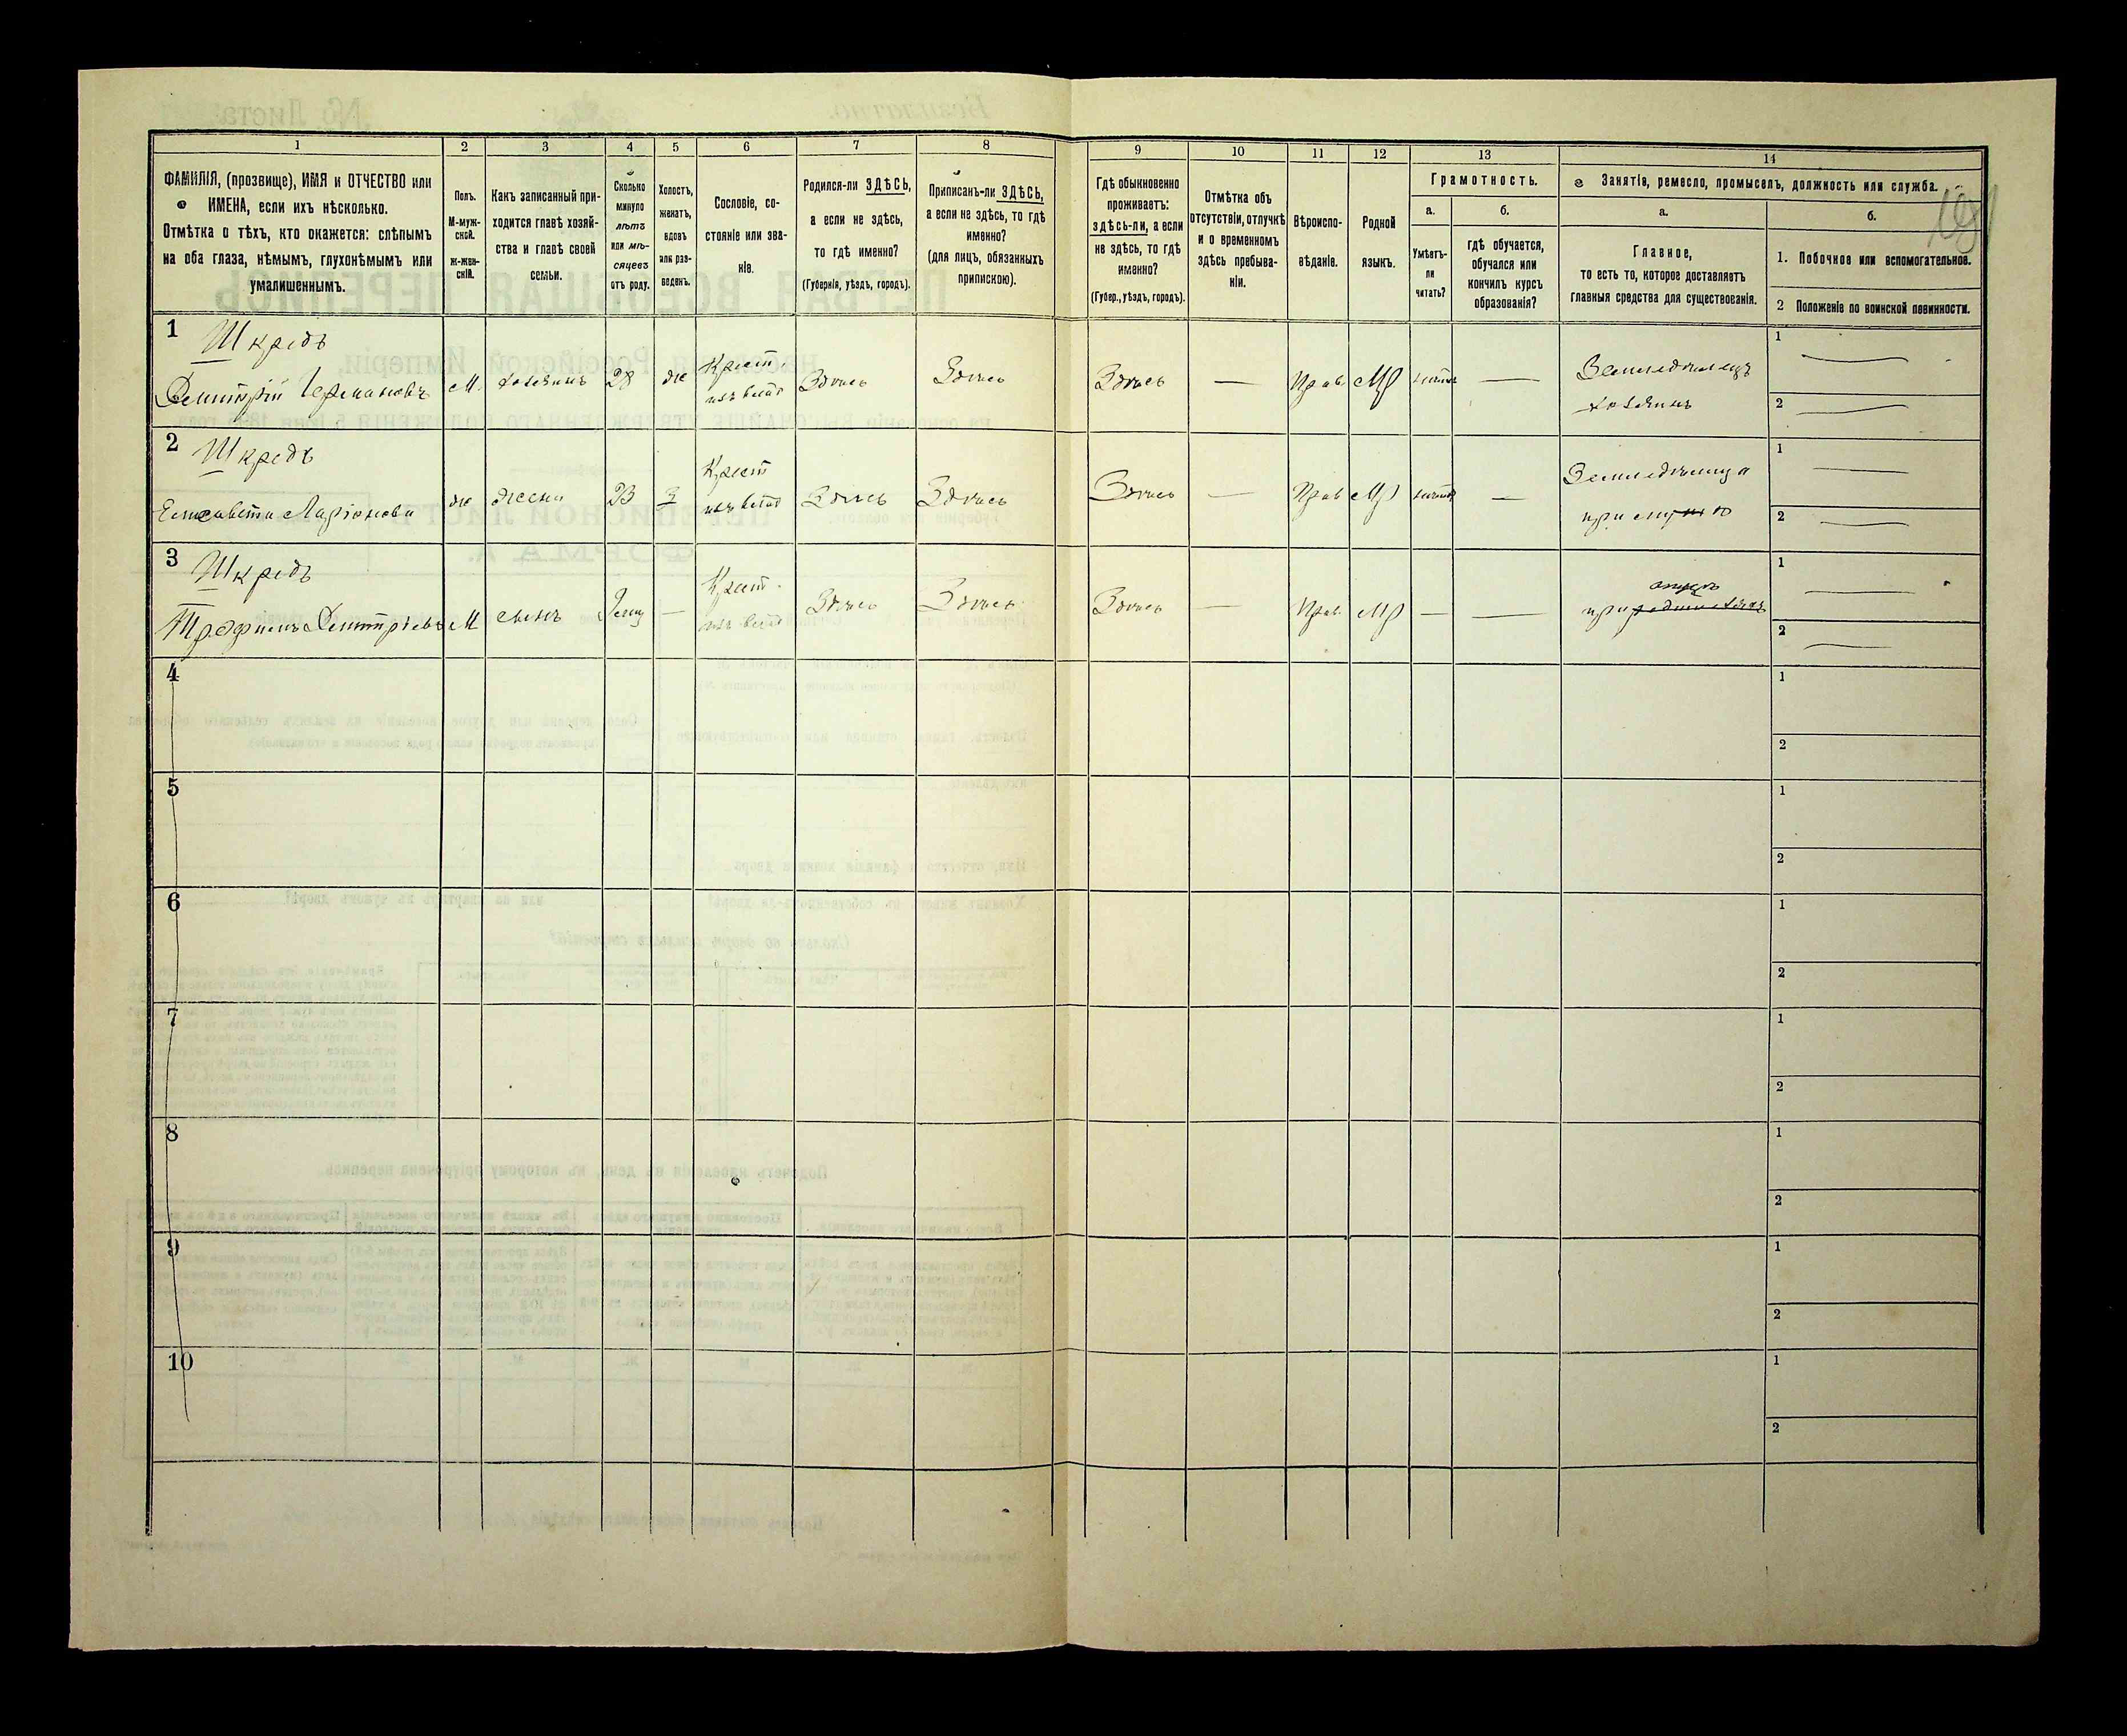 1
2
3
4
5
6
7
8
9
10
11
12
13
14
ФАМИЛІЯ, (прозвище), ИМЯ и ОТЧЕСТВО или
ИМЕНА, если ихъ нѣсколько.
Отмѣтка о тѣхъ, кто окажется: слѣпымъ
на оба глаза, нѣмымъ, глухонѣмымъ или
умалишеннымъ.
Полъ.
М-муж-
ской.
Ж-жен-
скій.
Какъ записанный при-
ходится главѣ хозяй-
ства и главѣ своей
семьи.
Сколько
минуло
лѣтъ
или мѣ-
сяцевъ
отъ роду.
Холостъ,
женатъ,
вдовъ
или раз-
веденъ.
Сословіе, со-
стояніе или зва-
ніе.
Родился-ли ЗДѢСЬ,
а если не здѣсь,
то гдѣ именно?
(Губернія, уѣздъ, городъ).
Приписанъ-ли ЗДѢСЬ,
а если не здѣсь, то гдѣ
именно?
(для лицъ, обязанныхъ
припискою).
Гдѣ обыкновенно
проживаетъ:
здѣсь-ли, а если
не здѣсь, то гдѣ
именно?
(Губер., уѣздъ, городъ).
Отмѣтка объ
отсутствіи, отлучкѣ
и о временномъ
здѣсь пребыва-
ніи.
Вѣроиспо-
вѣданіе.
Родной
языкъ.
Грамотность.
а.
Умѣетъ-
ли
читать?
б.
гдѣ обучается,
обучался или
кончилъ курсъ
образованія?
Занятія, ремесло, промыселъ, должность или служба.
а.
Главное,
то есть то, которое доставляетъ
главныя средства для существованія.
б.
1. Побочное или вспомогательное.
2 Положеніе по воинской повинности.
1
Шкредъ
Дмитрій Германовъ
М.
хозяинъ
28
ж
Крест.
Здѣсь
Здѣсь
Здѣсь
—
Прав.
Мр
—
Земледѣлецъ
хозяинъ
1 —
2 —
2
Шкредъ
Елисавета Ларіонова
ж
жена
23
З
Крест
Здѣсь
Здѣсь
Здѣсь
—
Прав
Мр
—
Земледѣлица
при
1 —
2 —
3
Шкредъ
Трофимъ Дмитріевъ
М
сынъ
—
Крест.
Здѣсь
Здѣсь
Здѣсь
—
Прав.
Мр
—
—
отцѣ
при
1 —
2 —
4
1
2
5
1
2
6
1
2
7
1
2
8
1
2
9
1
2
10
1
2